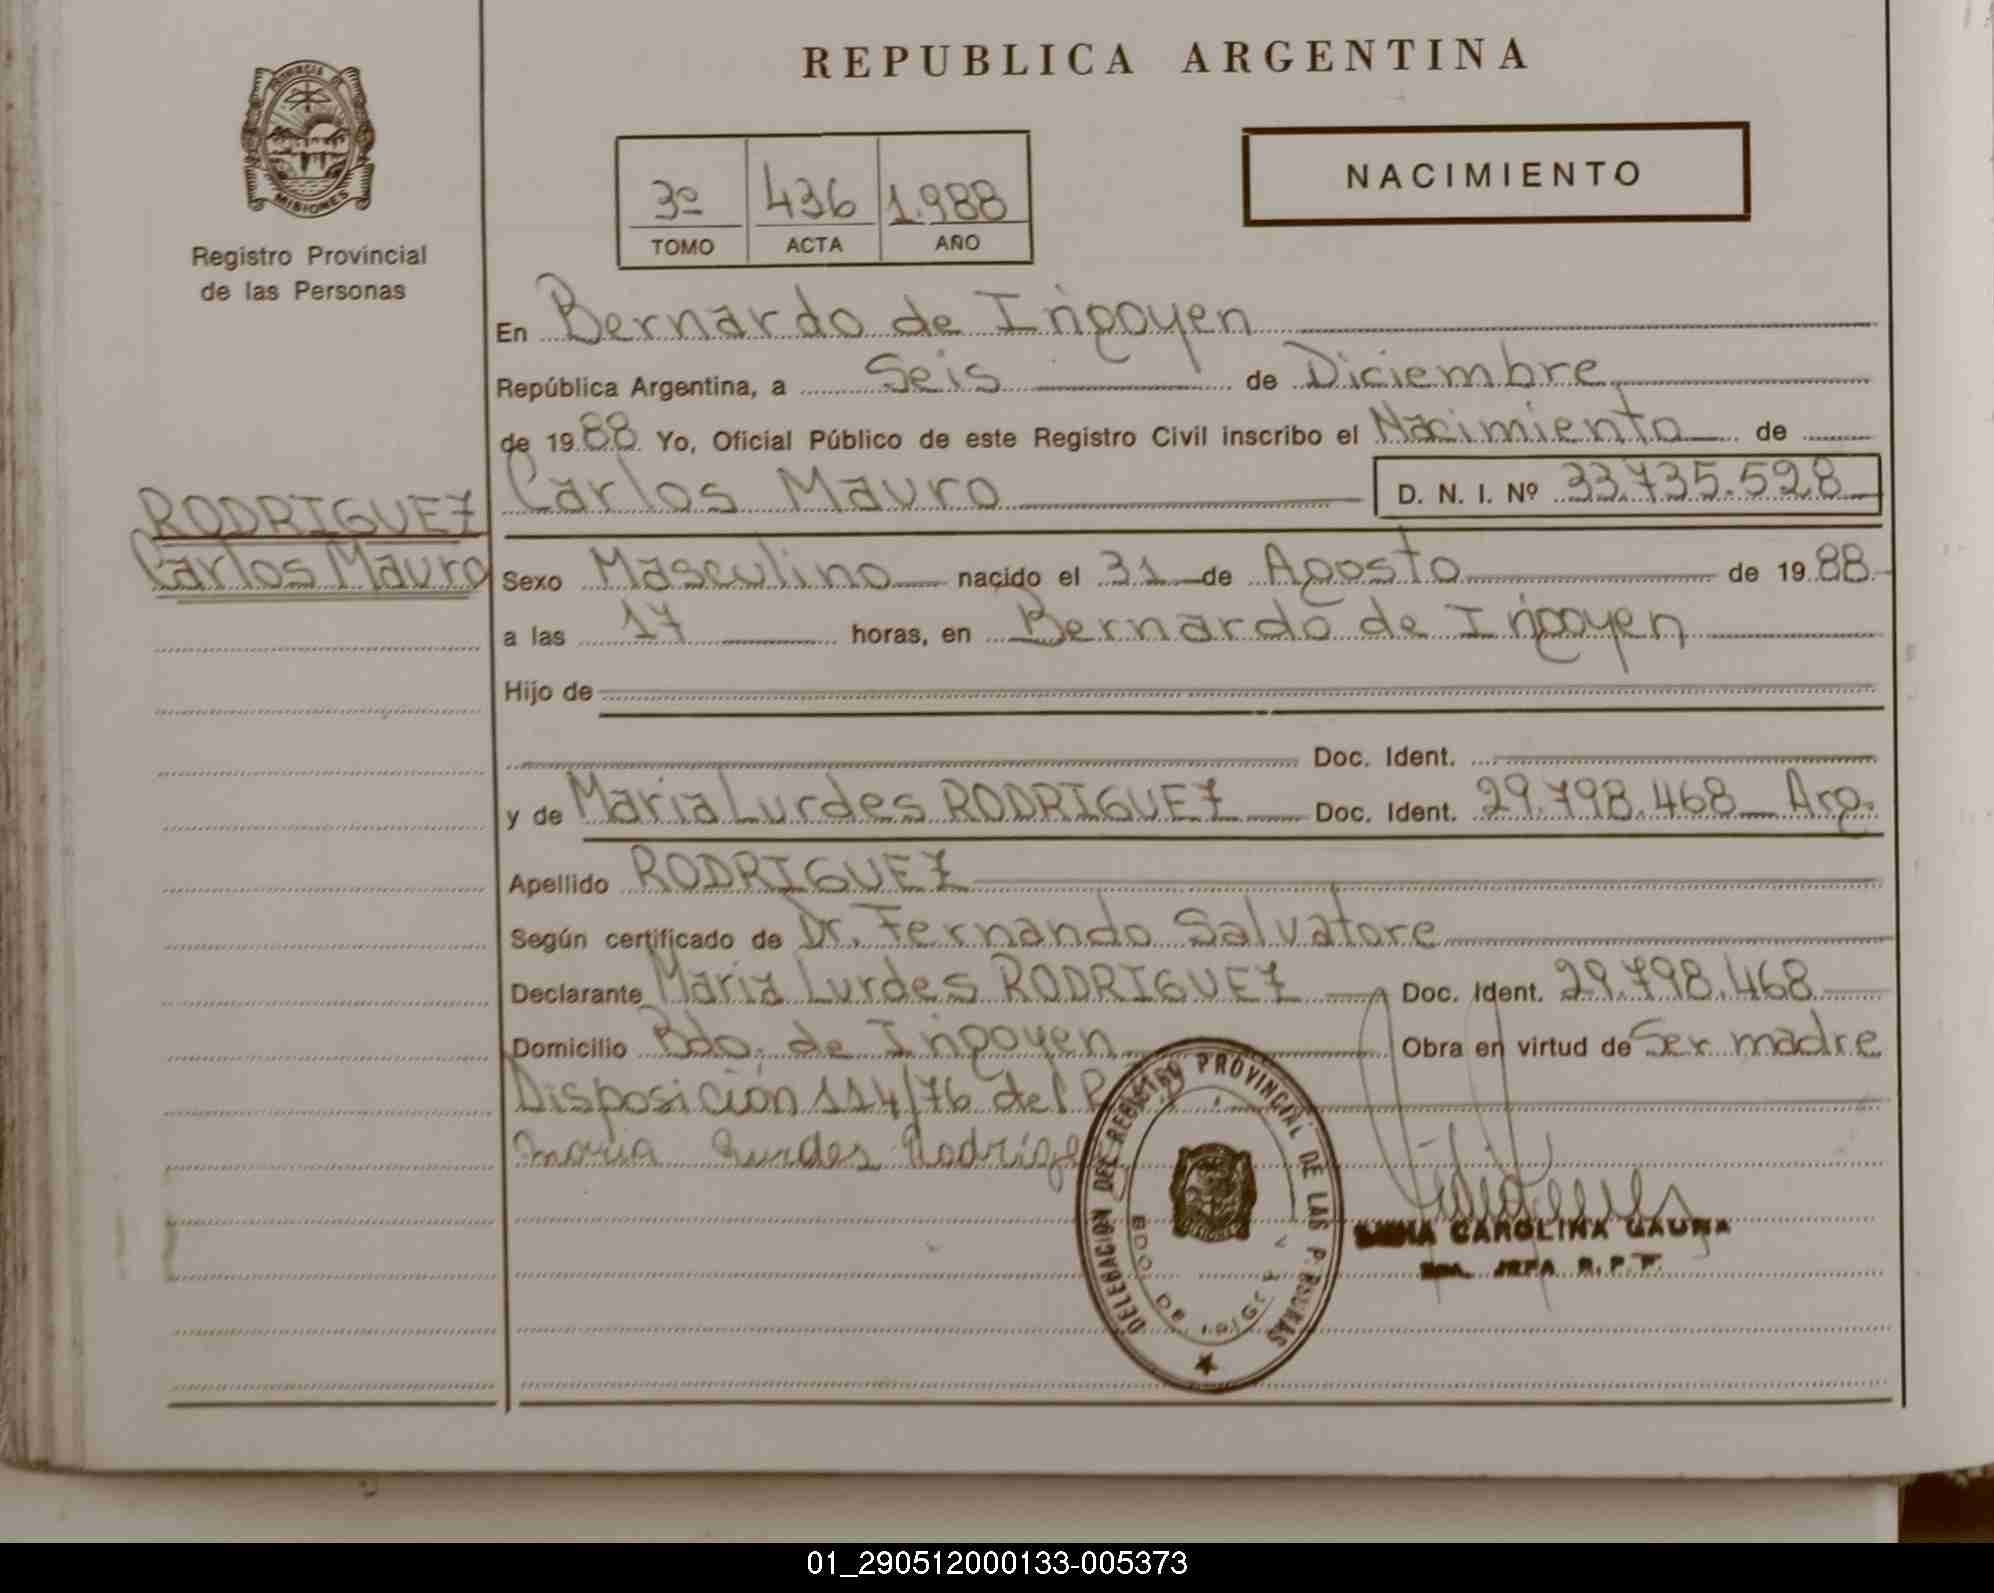 REPUBLICA ARGENTINA
PROVINCIA DE
MISIONES
Registro Provincial
de las Personas
3º 436 1.988
TOMO ACTA AÑO
NACIMIENTO
En Bernardo de Irigoyen
República Argentina, a Seis de Diciembre
de 1988 Yo, Oficial Público de este Registro Civil inscribo el Nacimiento de
Carlos Mauro D. N. I. Nº 33.735.528
RODRIGUEZ
Carlos Mauro
Sexo Masculino nacido el 31 de Agosto de 1988
a las 17 horas, en Bernardo de Irigoyen
Hijo de
Doc. Ident.
y de Maria Lurdes RODRIGUEZ Doc. Ident. 29.798.468 Arg.
Apellido RODRIGUEZ
Según certificado de Dr. Fernando Salvatore
Declarante Maria Lurdes RODRIGUEZ Doc. Ident. 29.798.468
Domicilio Bdo. de Irigoyen Obra en virtud de Ser madre
Disposición 114/76 del
Maria Lurdes
DELEGACION DEL REGISTRO PROVINCIAL DE LAS PERSONAS
BDO. DE IRIGOYEN
CAROLINA GAUNA
01_290512000133-005373